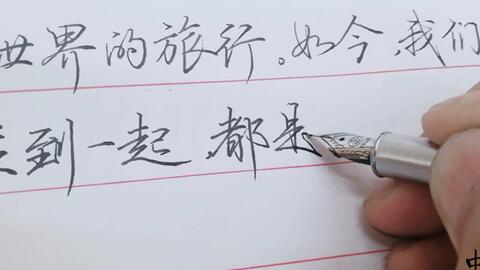 世界的旅行。如今,我们
到一起,都是